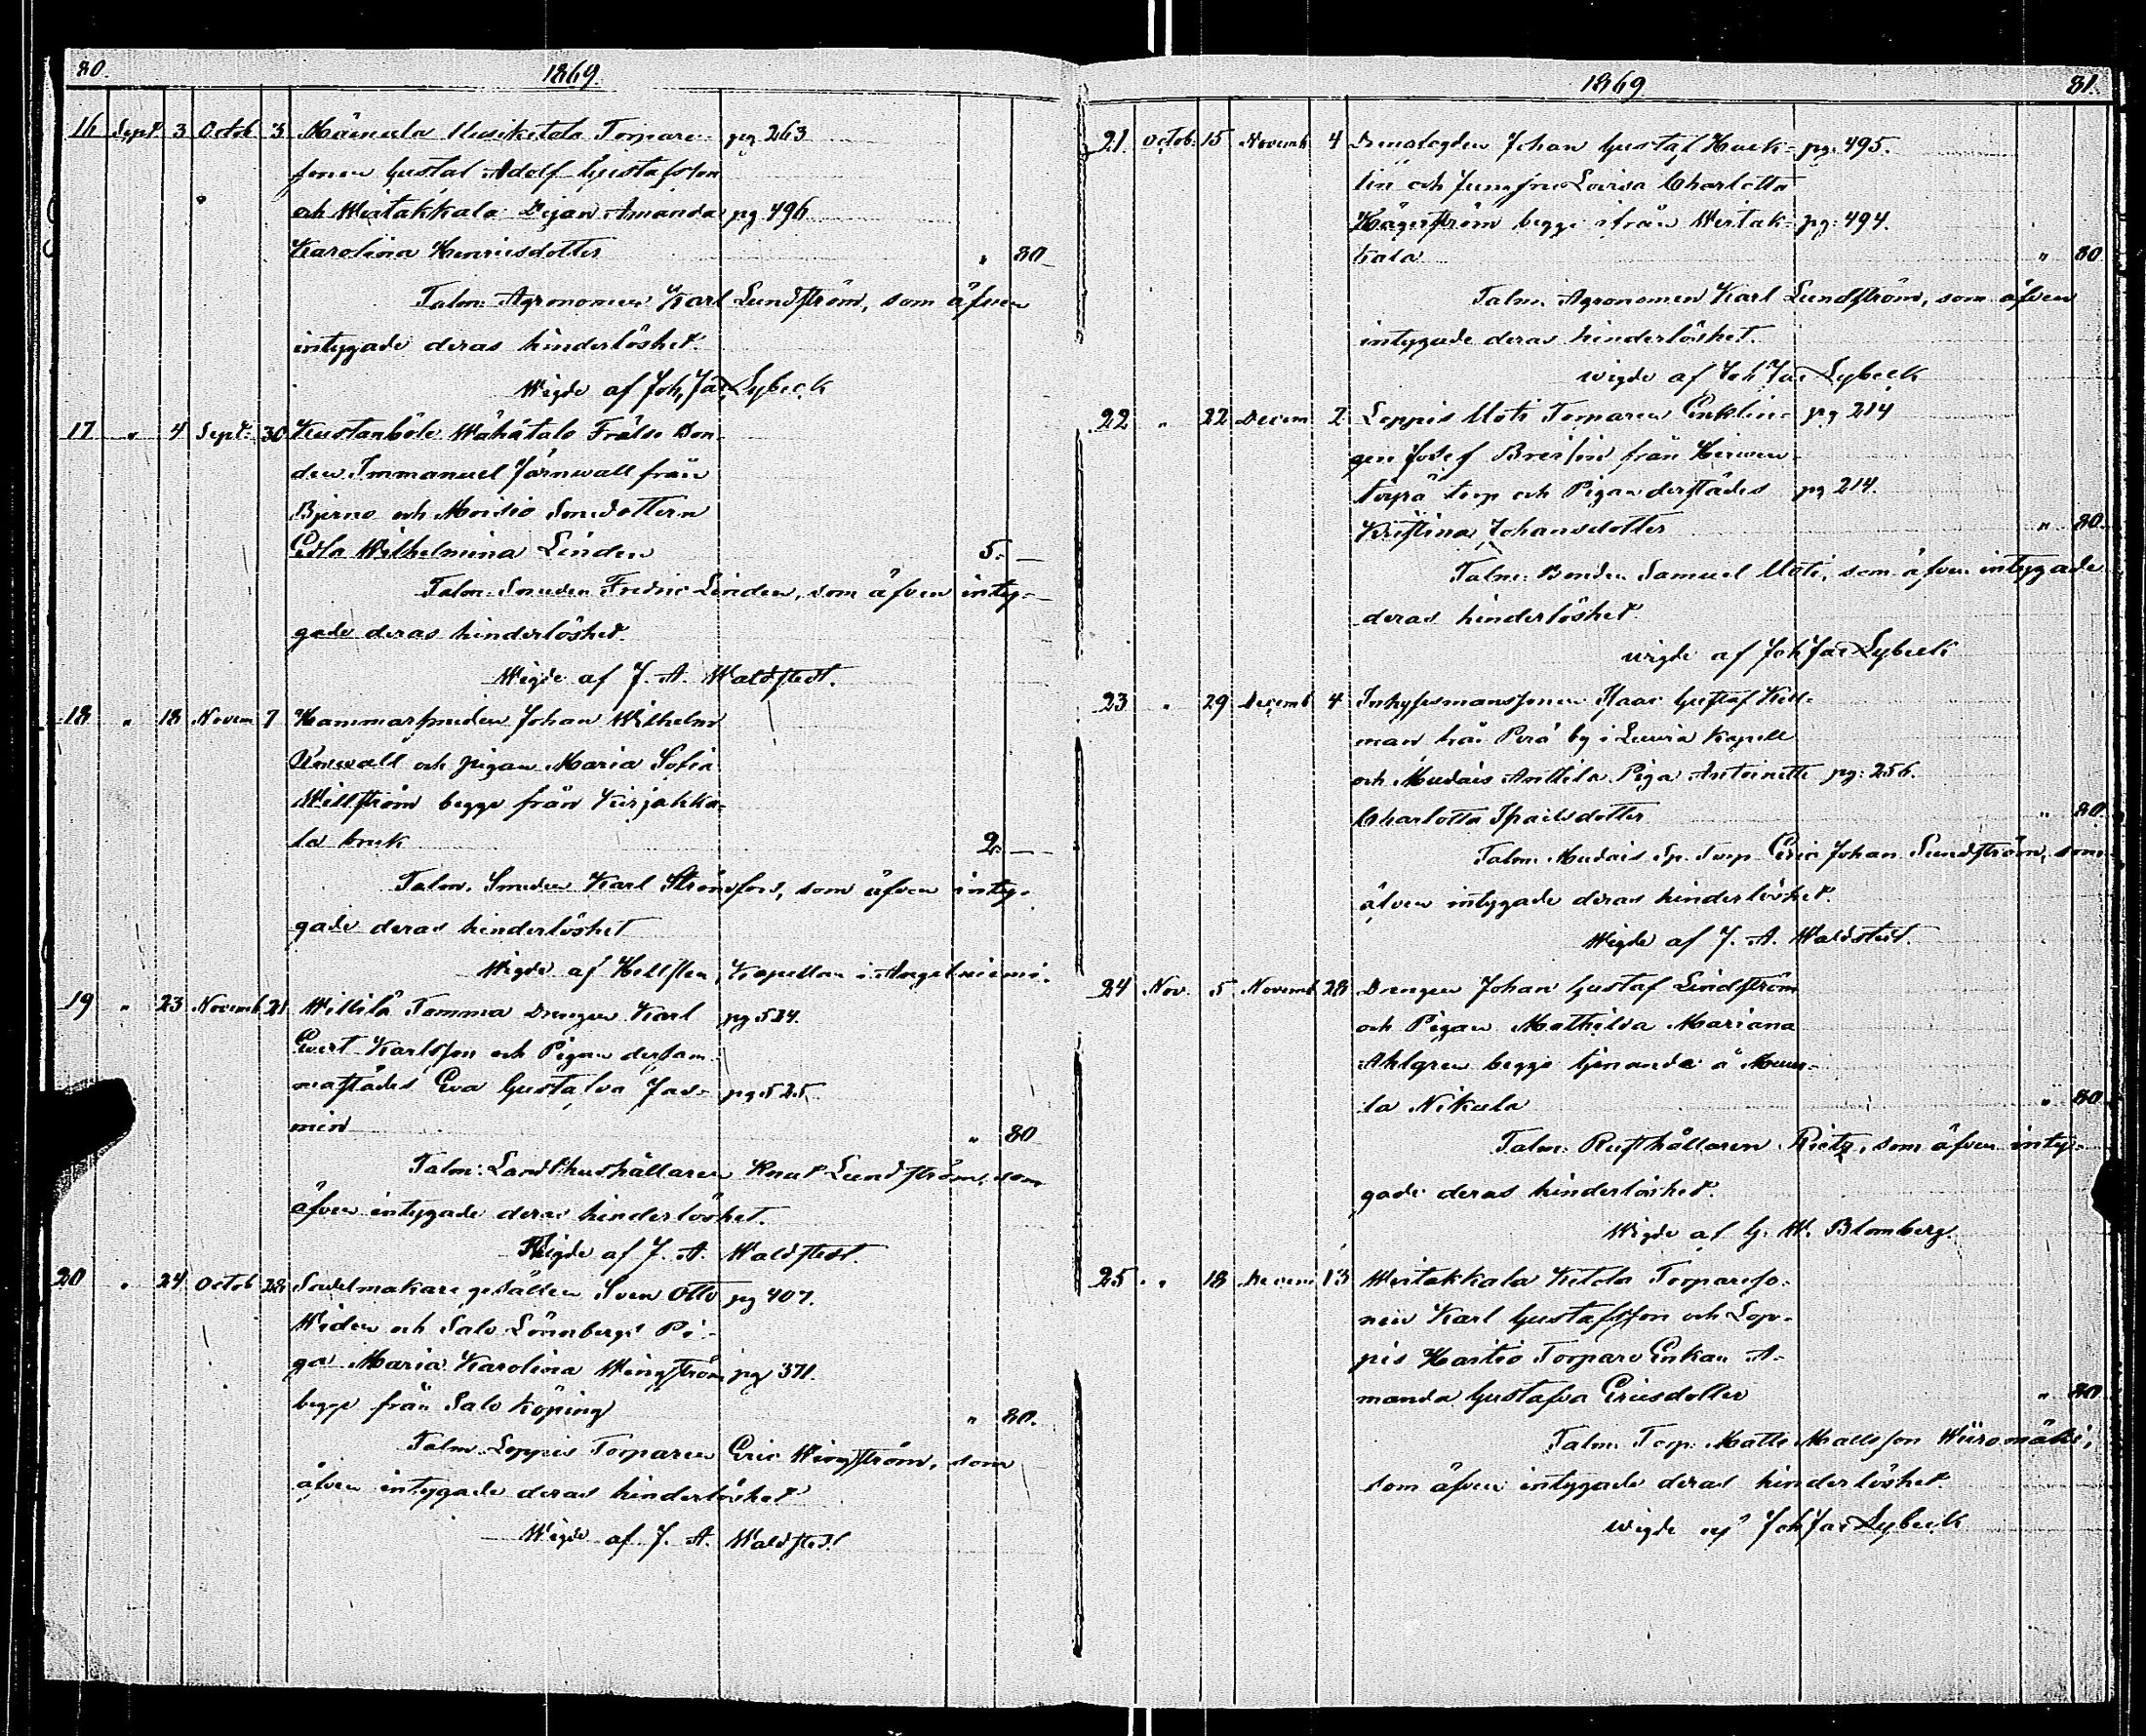 80. 1869.
16 Sept. 3 Octob 3 Märinula Uusikatalo Torpare- pg 263
sonen Gustaf Adolf Gustafsson
och Wiitakkala Pigan Amanda pg 496
Karolina Henricsdotter " 80
Talm. Agronomen Karl Lundström, som äfven
intygade deras hinderlöshet.
Wigde af Joh. Jac. Lybeck
17 " 4 Sept. 30 Kustanböle Wähätalo Frälse Bon-
den Immanuel Järnwall från
Bjerno och Moisio Smedottern
Edla Wilhelmina Linden 5. —
Talm. Smeden Fredric Linden, som äfven inty-
gade deras hinderlöshet.
Wigde af J. A. Waldstedt.
18 " 18 Novem 7 Hammarsmeden Johan Wilhelm
och pigan Maria Sofia
Willström begge från Kirjakka-
la bruk 2. —
Talm. Smeden Karl Strömfors, som äfven inty-
gade deras hinderlöshet
Wigde af Hellsten, Kapellan i Angelniemi.
19 " 23 Novemb 21 Willilä Tamma Drengen Karl pg 524.
Evert Karlsson och Pigan dersam-
mastädes Eva Gustafva Jas- pg 525
min " 80
Talm: Landthushållaren Knut Lundström, som
äfven intygade deras hinderlöshet.
Wigde af J. A. Waldstedt.
20 " 24 Octob 28 Sadelmakare gesällen Sven Otto pg 407.
Widen och Salo Lönnbergs Pi-
ga Maria Karolina Wingström pg 371.
begge från Salo Köping " 80.
Talm. Loppis Torparen Eric Wingström, som
äfven intygade deras hinderlöshet
Wigde af J. A. Waldstedt
1869 81.
21. Octob. 15 Novemb 4 Johan Gustaf Huck- pg. 495.
lin och Jungfru Lovisa Charlotta
Hägerström begge ifrån Wiitak- pg. 494.
kala " 80
Talm. Agronomen Karl Lundström, som äfven
intygade deras hinderlöshet.
wigde af Joh Jac Lybeck
22 " 22 Decem 2 Loppis Uoti Torparen Enklin- pg 214
gen Josef från
torp och Pigan derstädes pg 214.
Kristina Johansdotter " 80.
Talm: Bonden Samuel Uoti, som äfven intygade
deras hinderlöshet
wigde af Joh Jac Lybeck
23 " 29 Decemb 4 Inhysesmanssonen Isaac Gustaf Kell-
man från Perä by i Kapell
och Mudais Anttila Piga Antoinette pg: 256.
Charlotta Israelsdotter " 80.
Talm. Mudais Sp. Torp Eric Johan Sundström, som
äfven intygade deras hinderlöshet.
Wigde af J. A. Waldstedt.
24 Nov. 5 Novemb 28 Drengen Johan Gustaf Lindström
och Pigan Mathilda Mariana
Ahlgren begge tjenande å Muur-
la Nikula " 80
Talm: Rusthållaren Rietz, som äfven inty-
gade deras hinderlöshet.
Wigde af G. W. Blomberg.
25 " 18 Decem 13 Wiitakkala Ketola Torpareso-
nen Karl Gustafsson och Lop-
pis Haitio Torpare Enkan A-
manda Gustafva Ericsdotter " 80
Talm. Torp. Matts Mattsson Wiiromäki,
som äfven intygade deras hinderlöshet.
wigde af Joh Jac Lybeck